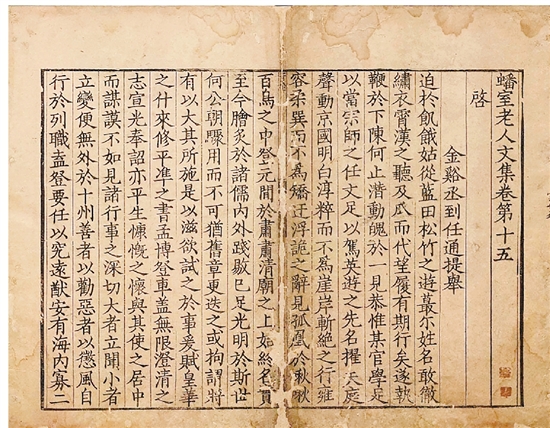 蟠室老人文集卷第十五
啓
金谿丞到任通提舉
迫於飢餓姑從藍田松竹之遊蕞尔姓名敢徹
繡衣霄漢之聽及瓜而代望履有期行矣遂執
鞭於下陳何止潜動魄於一見恭惟某官學足
以當宗師之任文足以駕英遊之先名擢天庭
聲動京國明白淳粹而不爲崖岸斬絶之行雍
容柔巽而不爲矯迂浮詭之辭見孤凰於啾啾
百鳥之中登元間於肅肅清廟之上始終名貫
至今膾炙於諸儒内外踐敭已足光明於斯世
何公朝驟用而不可猶舊章更迭之或拘謂將
有以大其所施是以滋欲試之於事爰賦皇華
之什來修平准之書孟博登車盖無限澄清之
志宣光奉詔亦平生慷慨之懷與其使之居中
而謀謨不如見諸行事之深切大者立聞小者
立變便無外於十州善者以勸惡者以懲風自
行於列職盍登要任以究遠猷安有海内寡二